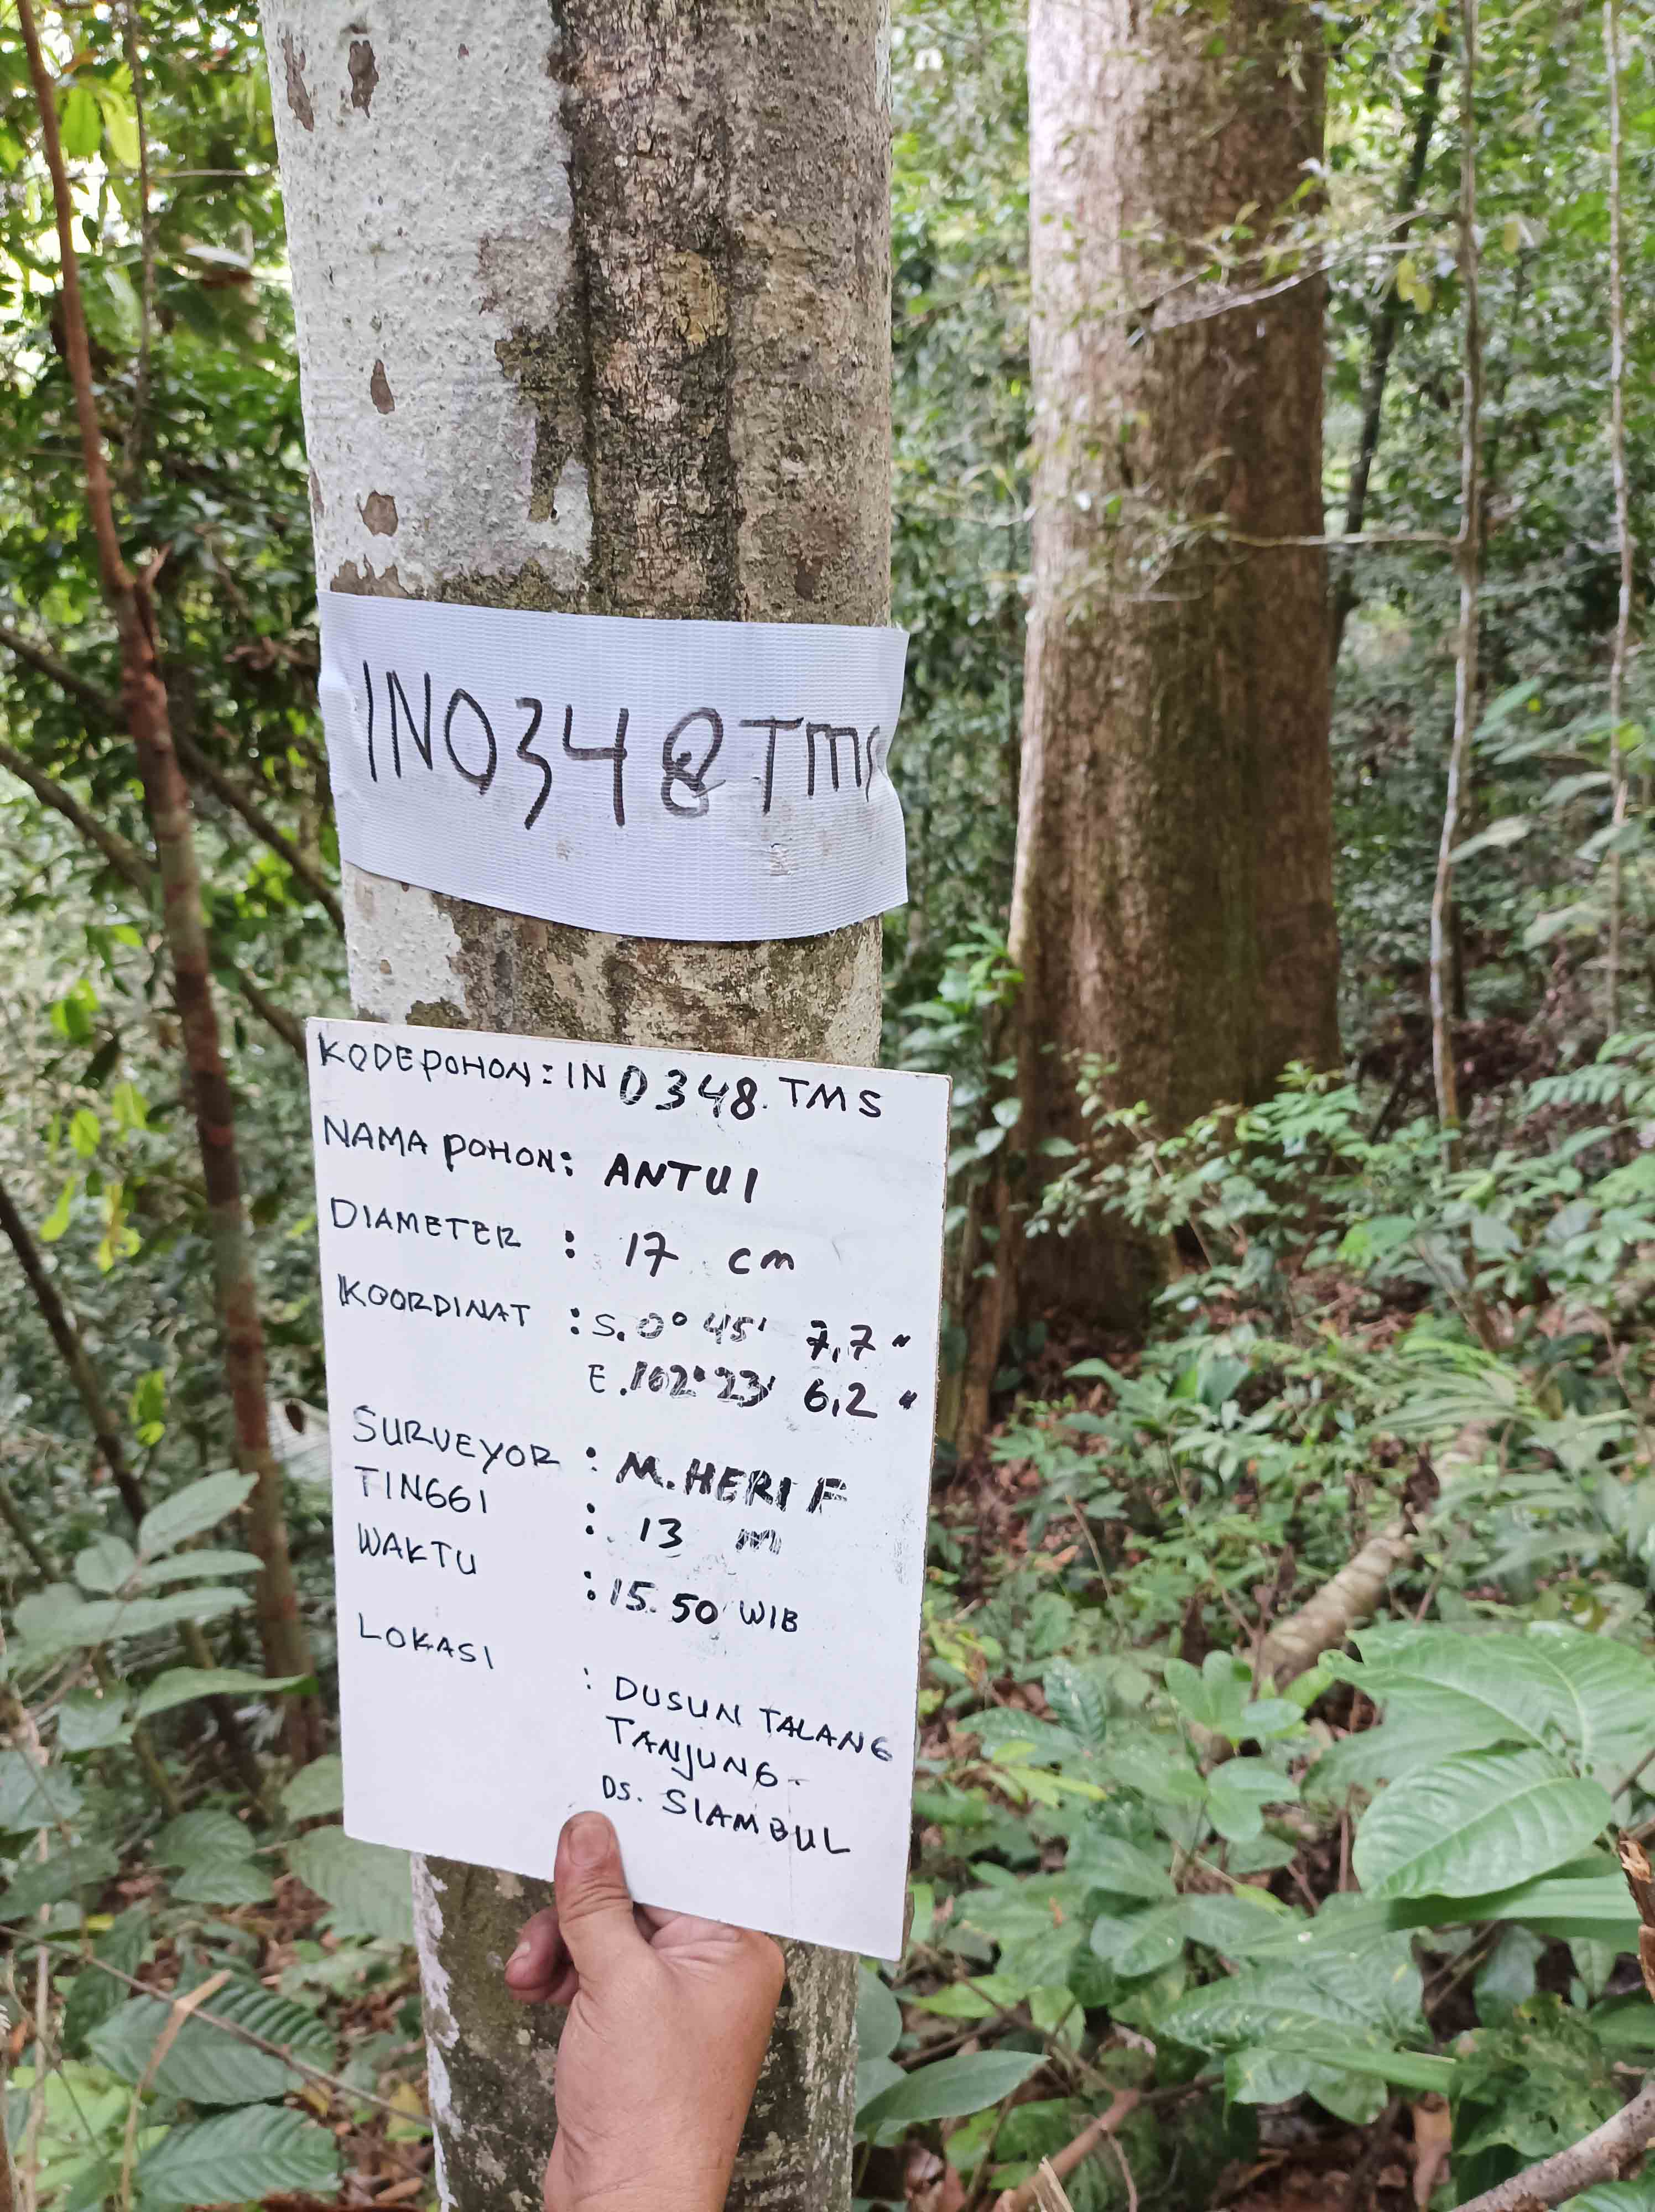 IN0348TMS
KODE POHON : IN 0348. TMS
NAMA POHON : ANTUI
DIAMETER : 17 cm
KOORDINAT : S. 0° 45' 7,7 "
E. 102° 23' 6,2 "
SURVEYOR : M. HERI F
TINGGI : 13 m
WAKTU : 15.50 WIB
LOKASI : DUSUN TALANG
TANJUNG -
DS. SIAMBUL